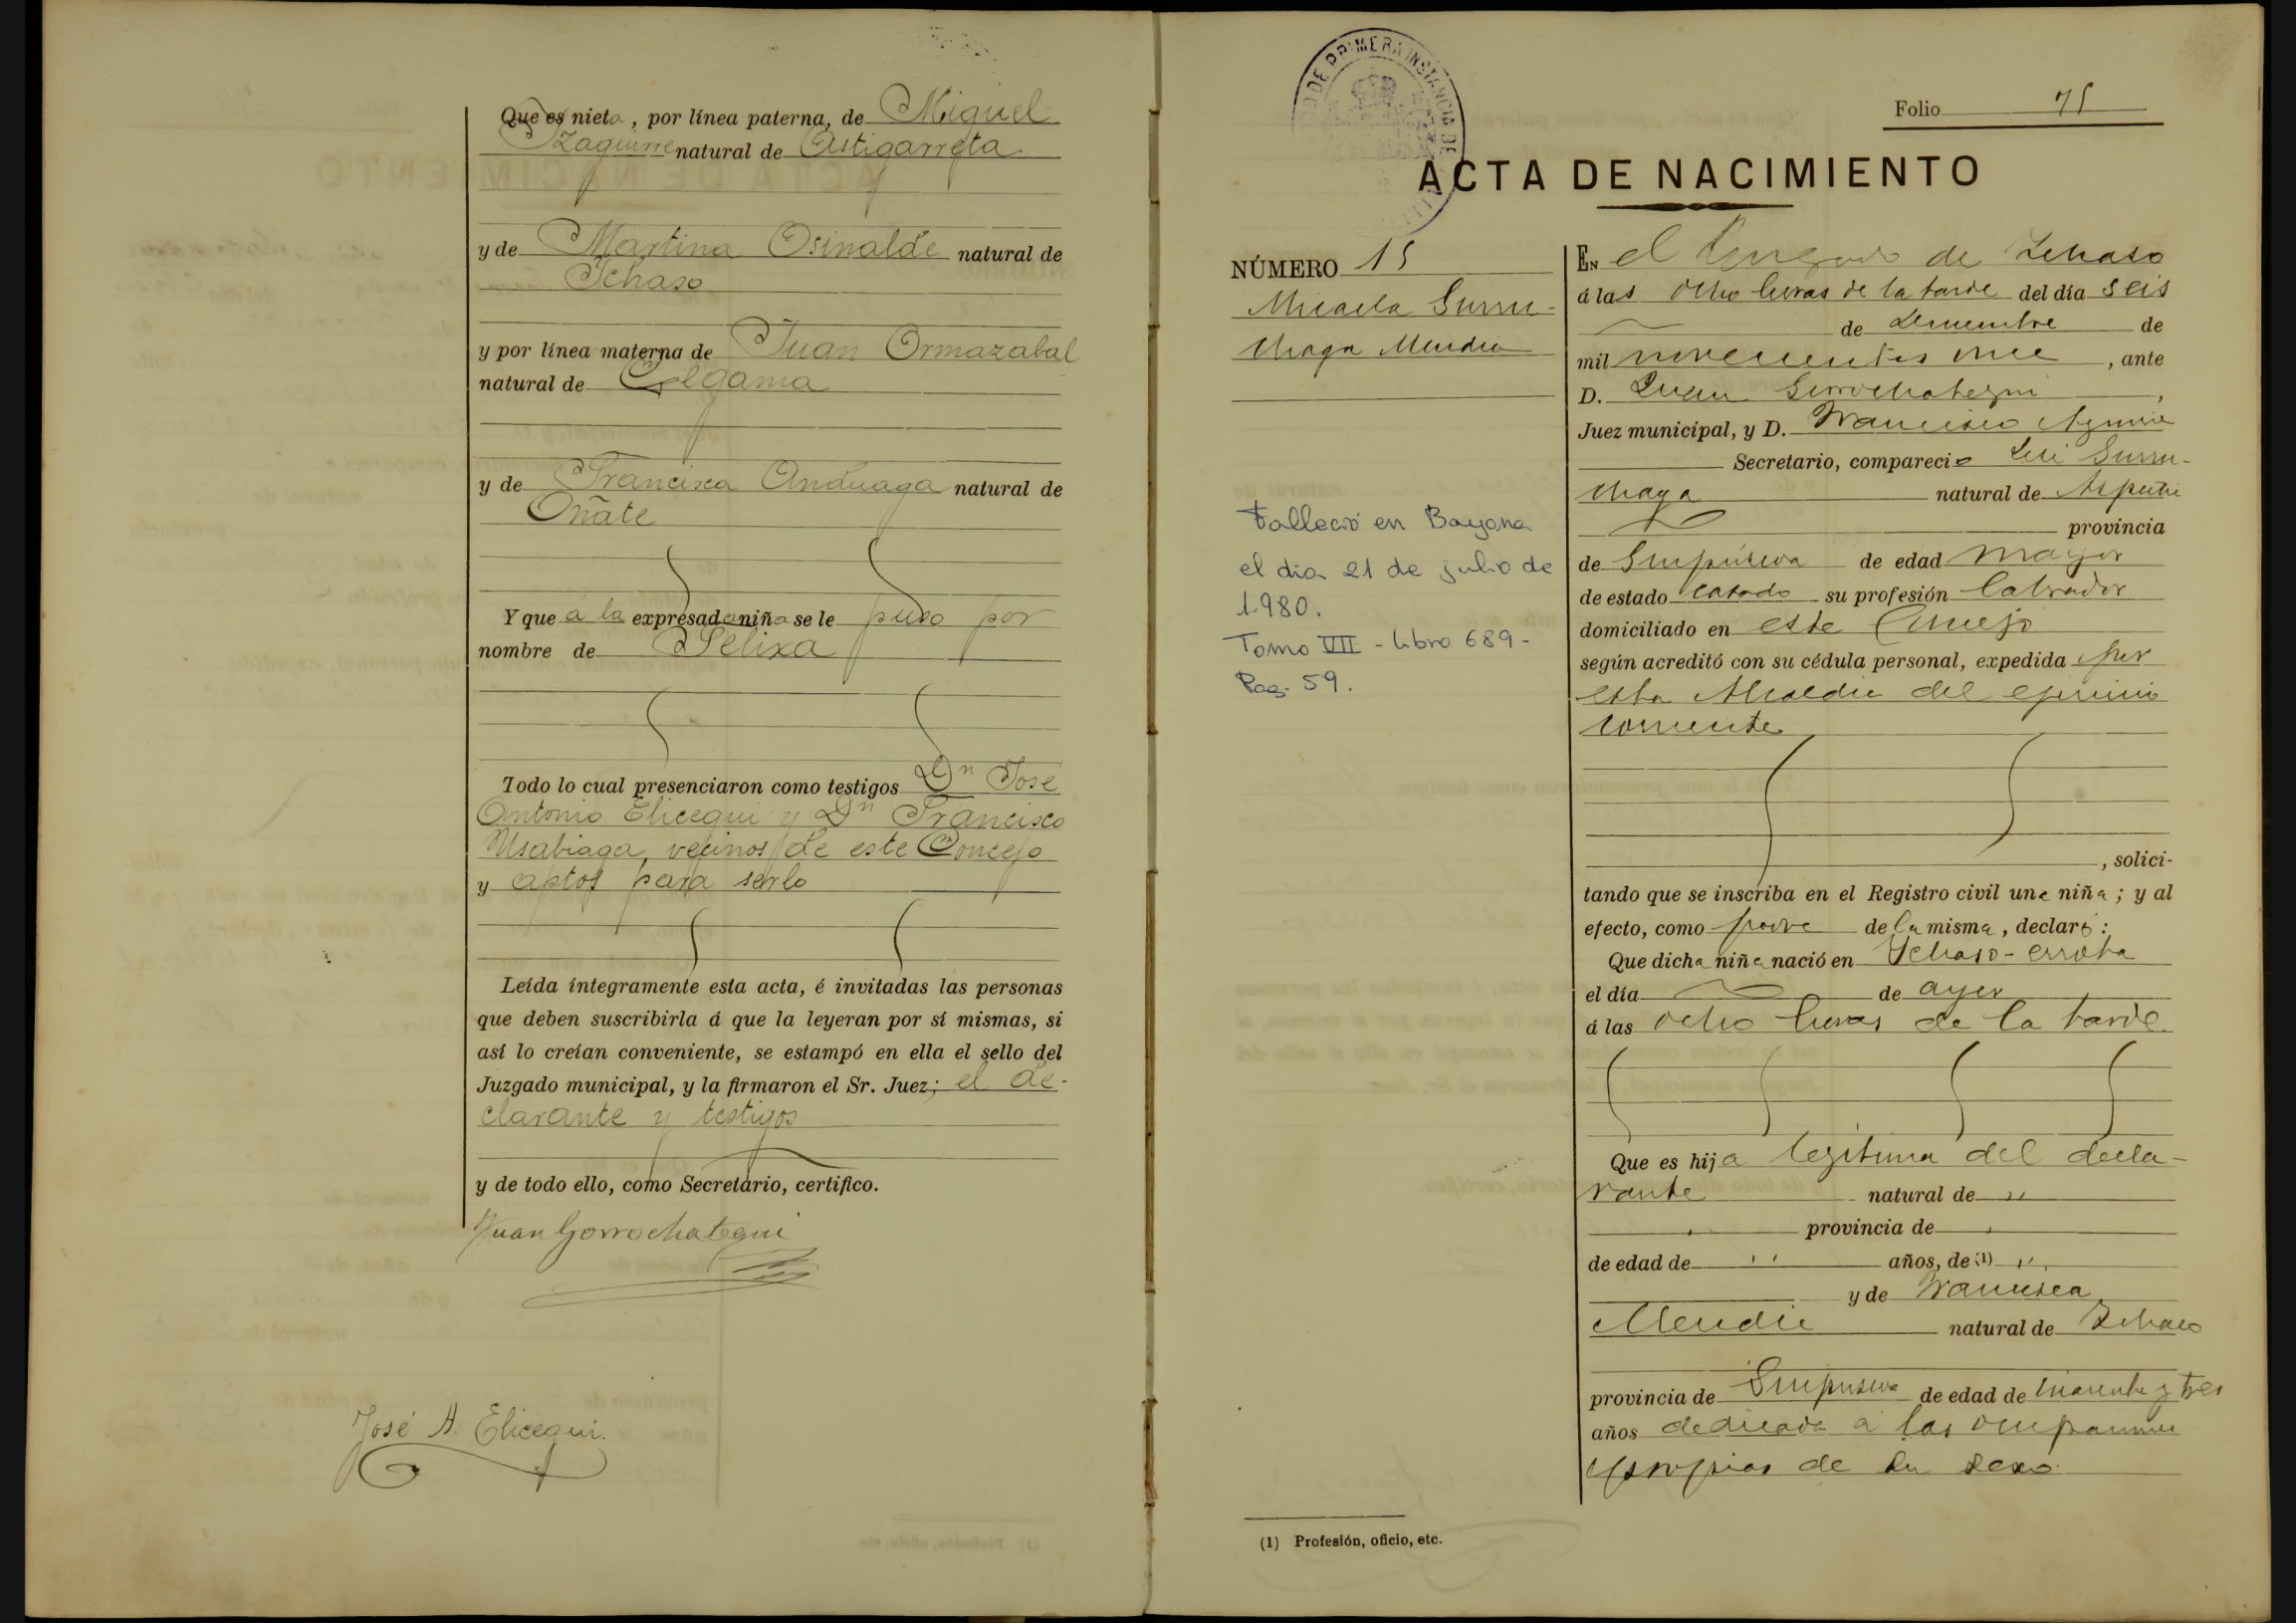 Que es nieta, por línea paterna, de Miguel
Yzaguirre natural de Astigarreta
y de Martina Osinalde natural de
Ichaso
y por línea materna de Juan Ormazabal
natural de Celgama
y de Francisca Anduaga natural de
Oñate
Y que á la expresada niña se le puso por
nombre de Felixa
Todo lo cual presenciaron como testigos Dn José
Antonio Elicegui y Dn Francisco
Usabiaga, vecinos de este Concejo
y aptos para serlo
Leída íntegramente esta acta, é invitadas las personas
que deben suscribirla á que la leyeran por sí mismas, si
así lo creían conveniente, se estampó en ella el sello del
Juzgado municipal, y la firmaron el Sr. Juez; el de-
clarante y testigos
y de todo ello, como Secretario, certifico.
Juan Gorrochategui
José A. Elicegui.
DE PRIMERA INSTANCIA DE
Folio 75
ACTA DE NACIMIENTO
NÚMERO 15
Micaela Gurru-
chaga Mendia
Falleció en Bayona
el dia 21 de julio de
1.980.
Tomo VII - libro 689-
Pag. 59.
EN el Juzgado de Ichaso
á las ocho horas de la tarde del día seis
de Diciembre de
mil novecientos once, ante
D. Juan Gorrochategui,
Juez municipal, y D. Francisco Aguirre
Secretario, compareció Gurru-
chaga natural de Azpeitia
provincia
de Guipúzcoa de edad mayor
de estado casado su profesión labrador
domiciliado en este Concejo
según acreditó con su cédula personal, expedida por
esta Alcaldia del ejercicio
corriente
, solici-
tando que se inscriba en el Registro civil una niña; y al
efecto, como padre de la misma, declaró:
Que dicha niña nació en Ichaso-errota
el día de ayer
á las ocho horas de la tarde.
Que es hija legitima del decla-
rante natural de ,,
provincia de
de edad de ,, años, de (1) ,,
y de Francisca
Mendia natural de Ichaso
provincia de Guipuzcoa de edad de cuarenta y tres
años dedicada a las ocupaciones
propias de su sexo.
(1) Profesión, oficio, etc.